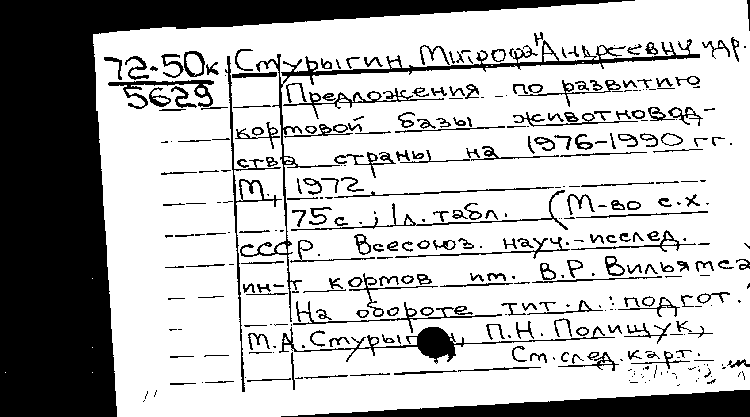 72-50к Стурыгин, Митрофан Андреевич и др.
5629 Предложения по развитию
кормовой базы животновод-
ства страны на 1976-1990 гг.
М., 1972.
75 с.; 1 л. табл. (М-во с.х.
СССР. Всесоюз. науч.-исслед.
ин-т кормов им. В.Р. Вильямса
На обороте тит. л.: подгот.
М.А. Стурыгин, П.Н. Полищук,
См. след. карт.